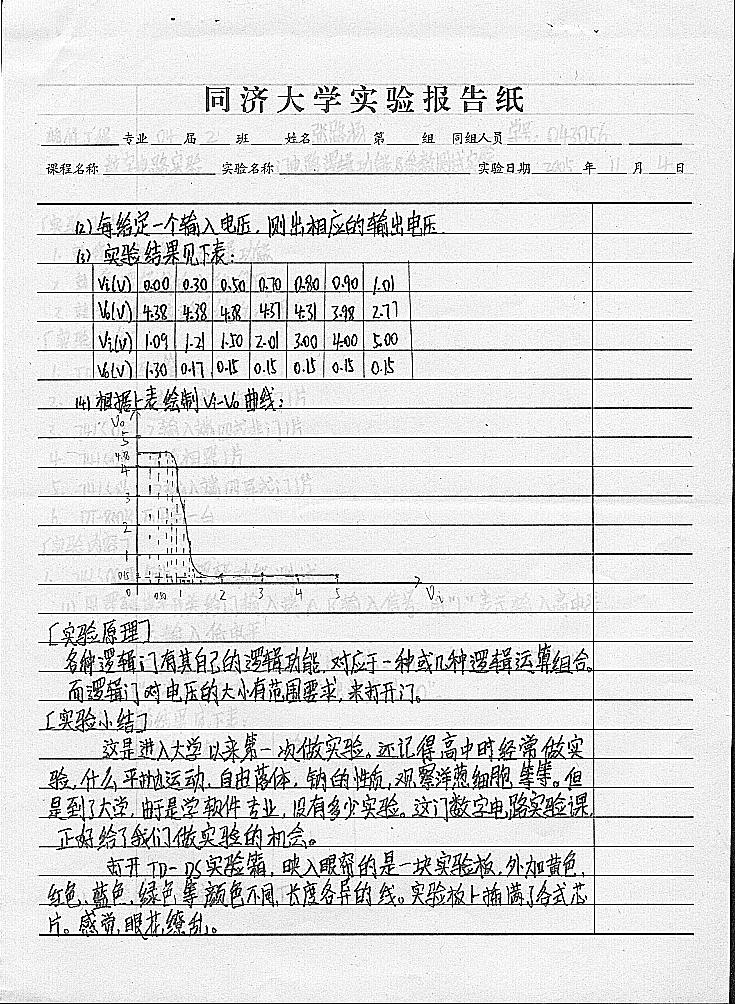 同济大学实验报告纸
专业 04 届 2 班 姓名 第 组 同组人员
课程名称 数字电路实验 实验名称 门电路逻辑功能及参数测试 实验日期 2005 年 11 月 4 日
(2) 每给定一个输入电压，测出相应的输出电压．
(3) 实验结果见下表：
Vi(V) 0.00 0.30 0.50 0.70 0.80 0.90 1.01
Vo(V) 4.38 4.38 4.38 4.37 4.31 3.98 2.77
Vi(V) 1.09 1.21 1.50 2.01 3.00 4.00 5.00
Vo(V) 1.30 0.17 0.15 0.15 0.15 0.15 0.15
(4) 根据上表绘制 Vi-Vo 曲线：
Vo
5
4.38
4
3
2
1
0.15
0 0.50 1 2 3 4 5 Vi
[实验原理]
各种逻辑门有其自己的逻辑功能，对应于一种或几种逻辑运算组合。
而逻辑门对电压的大小有范围要求，来打开门。
[实验小结]
这是进入大学以来第一次做实验。还记得高中时经常做实
验，什么平抛运动，自由落体，钠的性质，观察洋葱细胞等等。但
是到了大学，由于是学软件专业，没有多少实验。这门数字电路实验课，
正好给了我们做实验的机会。
打开TD-DS实验箱，映入眼帘的是一块实验板，外加黄色，
红色，蓝色，绿色等颜色不同，长度各异的线。实验板上插满了各式芯
片。感觉眼花缭乱。